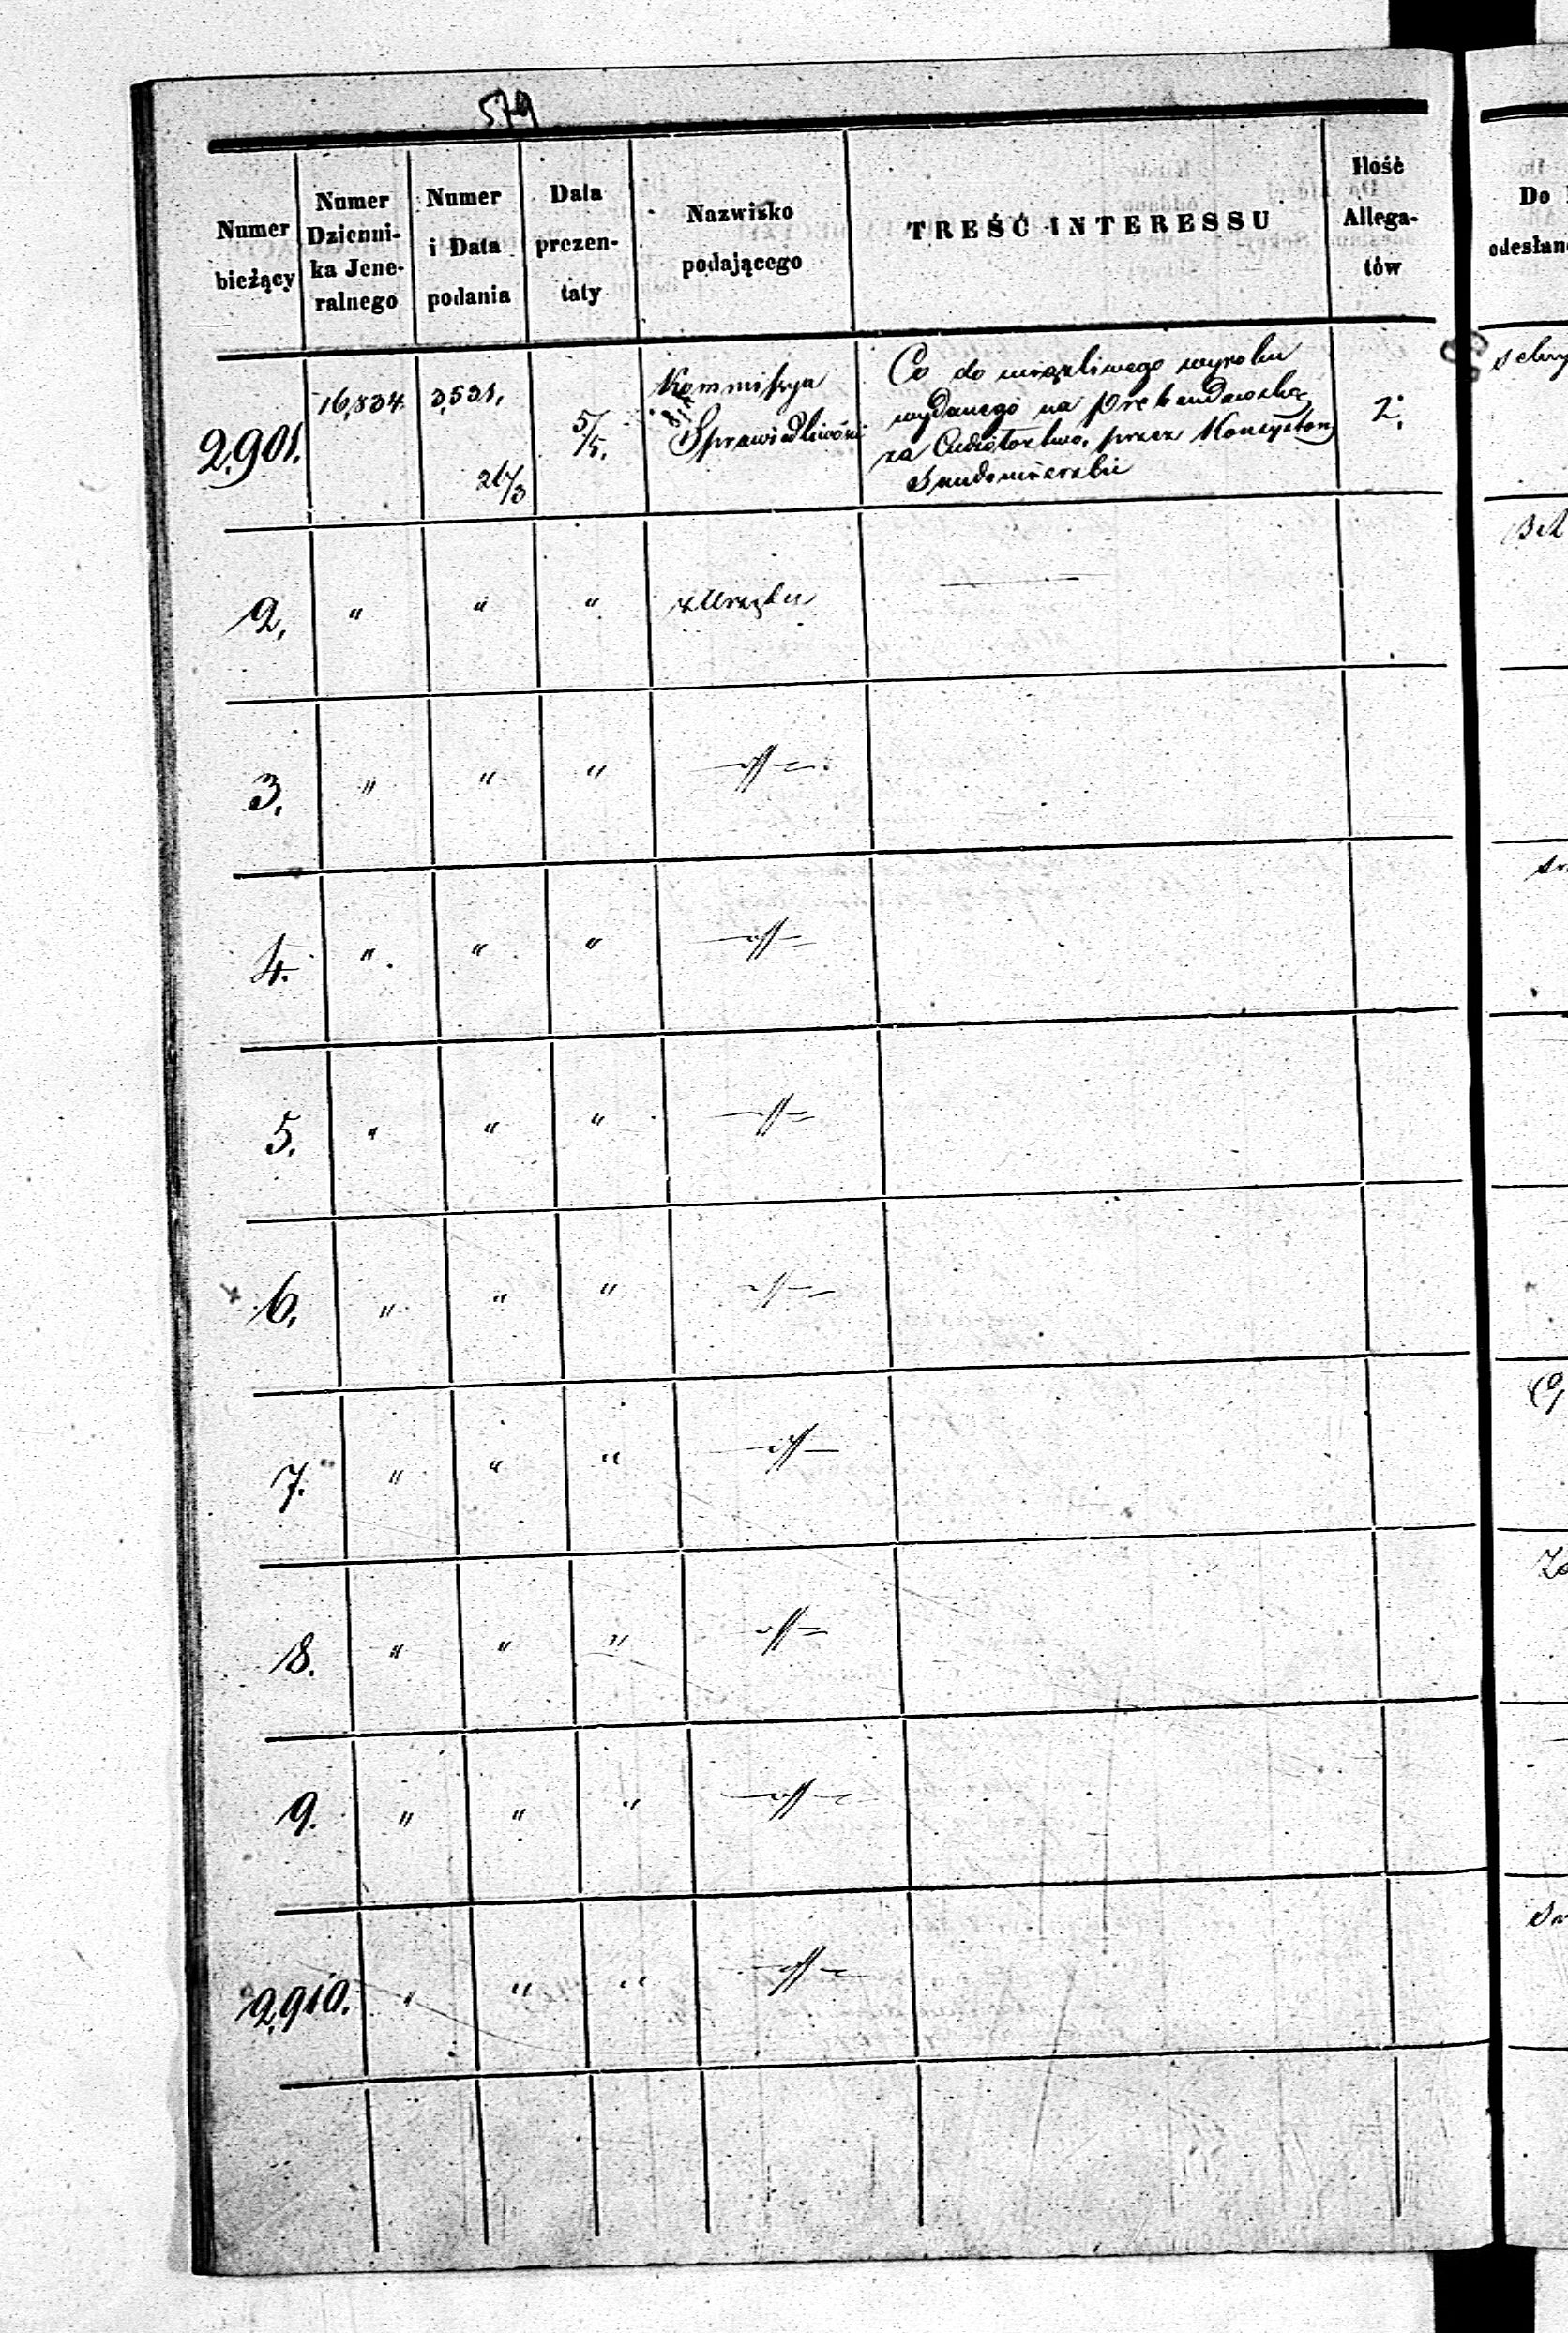 579
Numer
bieżący
Numer
Dzienni-
ka Jene-
ralnego
Numer
i Data
podania
Data
prezen-
taty
Nazwisko
podającego
TREŚĆ INTERESSU
Ilość
Allega-
tów
Do
odesłan
2,901.
16,834
3,531,
21/3
5/5.
Kommissya
Sprawiedliwości
Co do wyroku
wydanego na
za przez Konsystorz
Sandomierski
2.
2, " " " z Urzędu
3. " " "
4. " " "
5. " " "
6. " " "
7. " " "
8. " " "
9. " " "
2,910. " " "